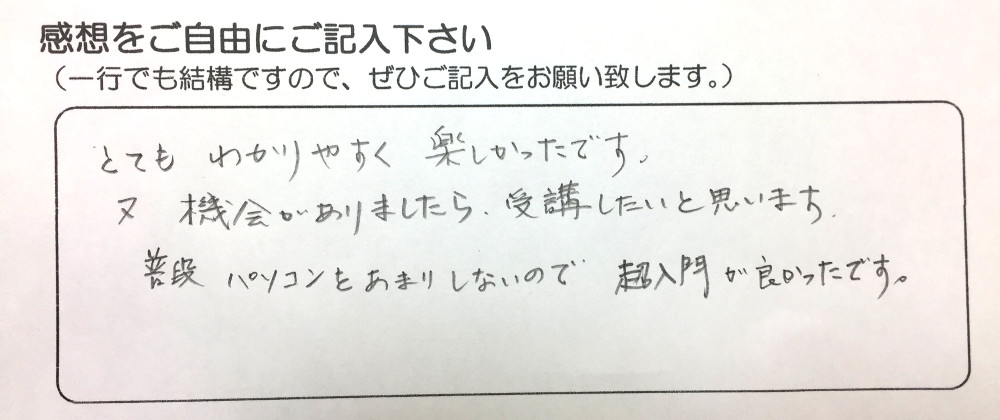 感想をご自由にご記入下さい
（一行でも結構ですので、ぜひご記入をお願い致します。）
とても わかりやすく 楽しかったです。
又 機会がありましたら、受講したいと思います。
普段 パソコンをあまりしないので 超入門が良かったです。